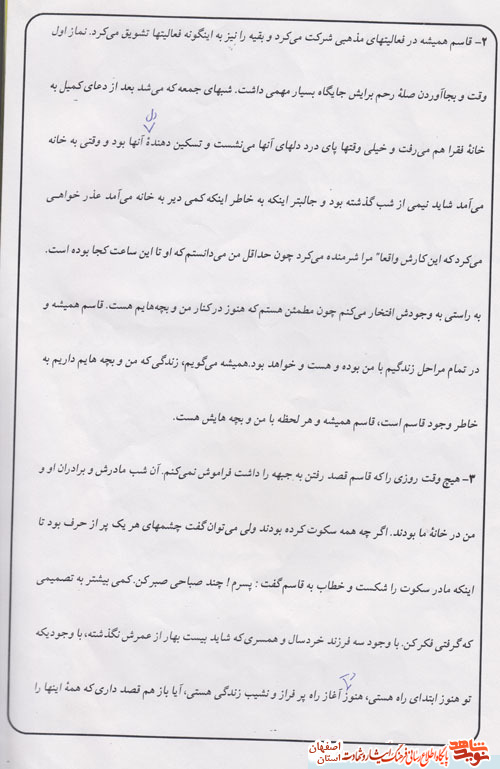 ۲- قاسم همیشه در فعالیتهای مذهبی شرکت می‌کرد و بقیه را نیز به اینگونه فعالیتها تشویق می‌کرد. نماز اول
وقت و بجاآوردن صلهٔ رحم برایش جایگاه بسیار مهمی داشت. شبهای جمعه که می‌شد بعد از دعای کمیل به
دل
خانهٔ فقرا هم می‌رفت و خیلی وقتها پای درد دلهای آنها می‌نشست و تسکین دهندهٔ آنها بود و وقتی به خانه
می‌آمد شاید نیمی از شب گذشته بود و جالبتر اینکه به خاطر اینکه کمی دیر به خانه می‌آمد عذر خواهی
می‌کرد که این کارش واقعا" مرا شرمنده می‌کرد چون حداقل من می‌دانستم که او تا این ساعت کجا بوده است.
به راستی به وجودش افتخار می‌کنم چون مطمئن هستم که هنوز در کنار من و بچه‌هایم هست. قاسم همیشه و
در تمام مراحل زندگیم با من بوده و هست و خواهد بود.همیشه می‌گویم، زندگی که من و بچه هایم داریم به
خاطر وجود قاسم است، قاسم همیشه و هر لحظه با من و بچه هایش هست.
۳- هیچ وقت روزی را که قاسم قصد رفتن به جبهه را داشت فراموش نمی‌کنم. آن شب مادرش و برادران او و
من در خانهٔ ما بودند. اگر چه همه سکوت کرده بودند ولی می‌توان گفت چشمهای هر یک پر از حرف بود تا
اینکه مادر سکوت را شکست و خطاب به قاسم گفت : پسرم ! چند صباحی صبر کن. کمی بیشتر به تصمیمی
که گرفتی فکر کن. با وجود سه فرزند خردسال و همسری که شاید بیست بهار از عمرش نگذشته، با وجودیکه
تو هنوز ابتدای راه هستی، هنوز آغاز راه پر فراز و نشیب زندگی هستی، آیا باز هم قصد داری که همهٔ اینها را
نوید شاهد
پایگاه اطلاع رسانی فرهنگ ایثار و شهادت
استان اصفهان